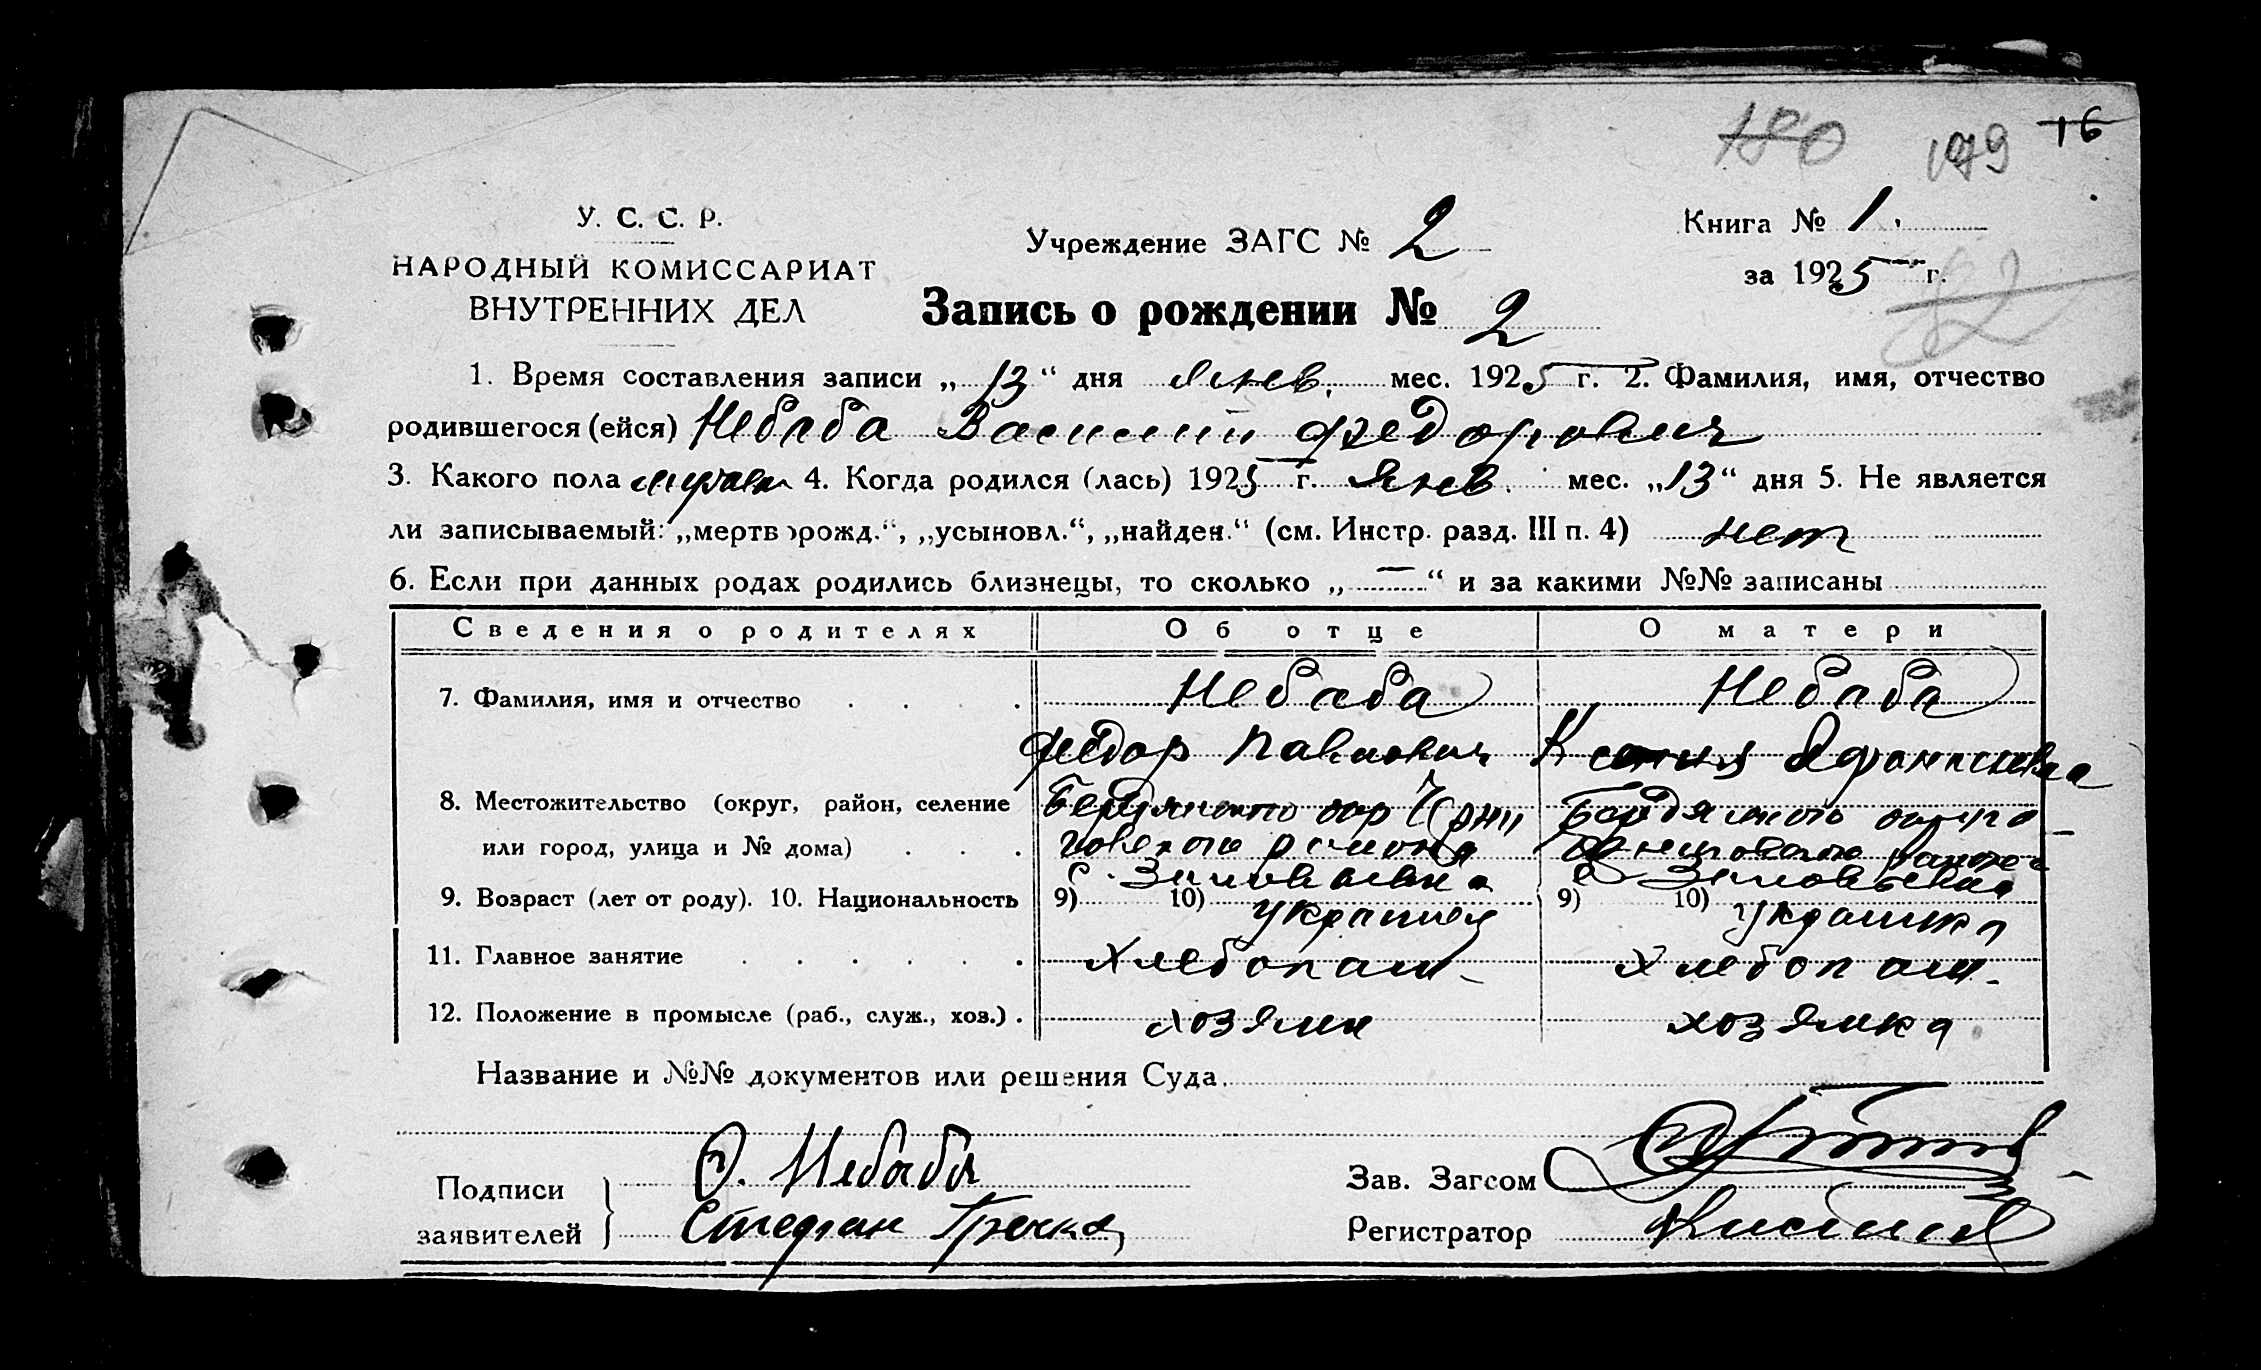 180 179 16
У. С. С. Р.
НАРОДНЫЙ КОМИССАРИАТ
ВНУТРЕННИХ ДЕЛ
Учреждение ЗАГС № 2
Книга № 1.
за 1925 г.
62
Запись о рождении № 2
1. Время составления записи „ 13 “ дня Янев. мес. 1925 г. 2. Фамилия, имя, отчество
родившегося (ейся) Небаба Василий Федорович
3. Какого пола мужск 4. Когда родился (лась) 1925 г. Янев. мес. „13“ дня 5. Не является
ли записываемый: „мертворожд.“, „усыновл.“, „найден.“ (см. Инстр. разд. III п. 4) нет
6. Если при данных родах родились близнецы, то сколько „ — “ и за какими №№ записаны
Сведения о родителях Об отце О матери
7. Фамилия, имя и отчество Небаба Небаба
Федор Павлович Ксения Афонасиевна
8. Местожительство (округ, район, селение Бердянского окр Черни Бердянского округа
или город, улица и № дома) говского района района
с. Зиновьевка с Зиновьевка
9. Возраст (лет от роду). 10. Национальность 9) 10) украинец 9) 10) украинка
11. Главное занятие Хлебопаш- Хлебопаш-
12. Положение в промысле (раб., служ., хоз.) хозяин хозяйка
Название и №№ документов или решения Суда
Подписи
заявителей
Ф. Небаба
Стефан Гречка
Зав. Загсом
Регистратор